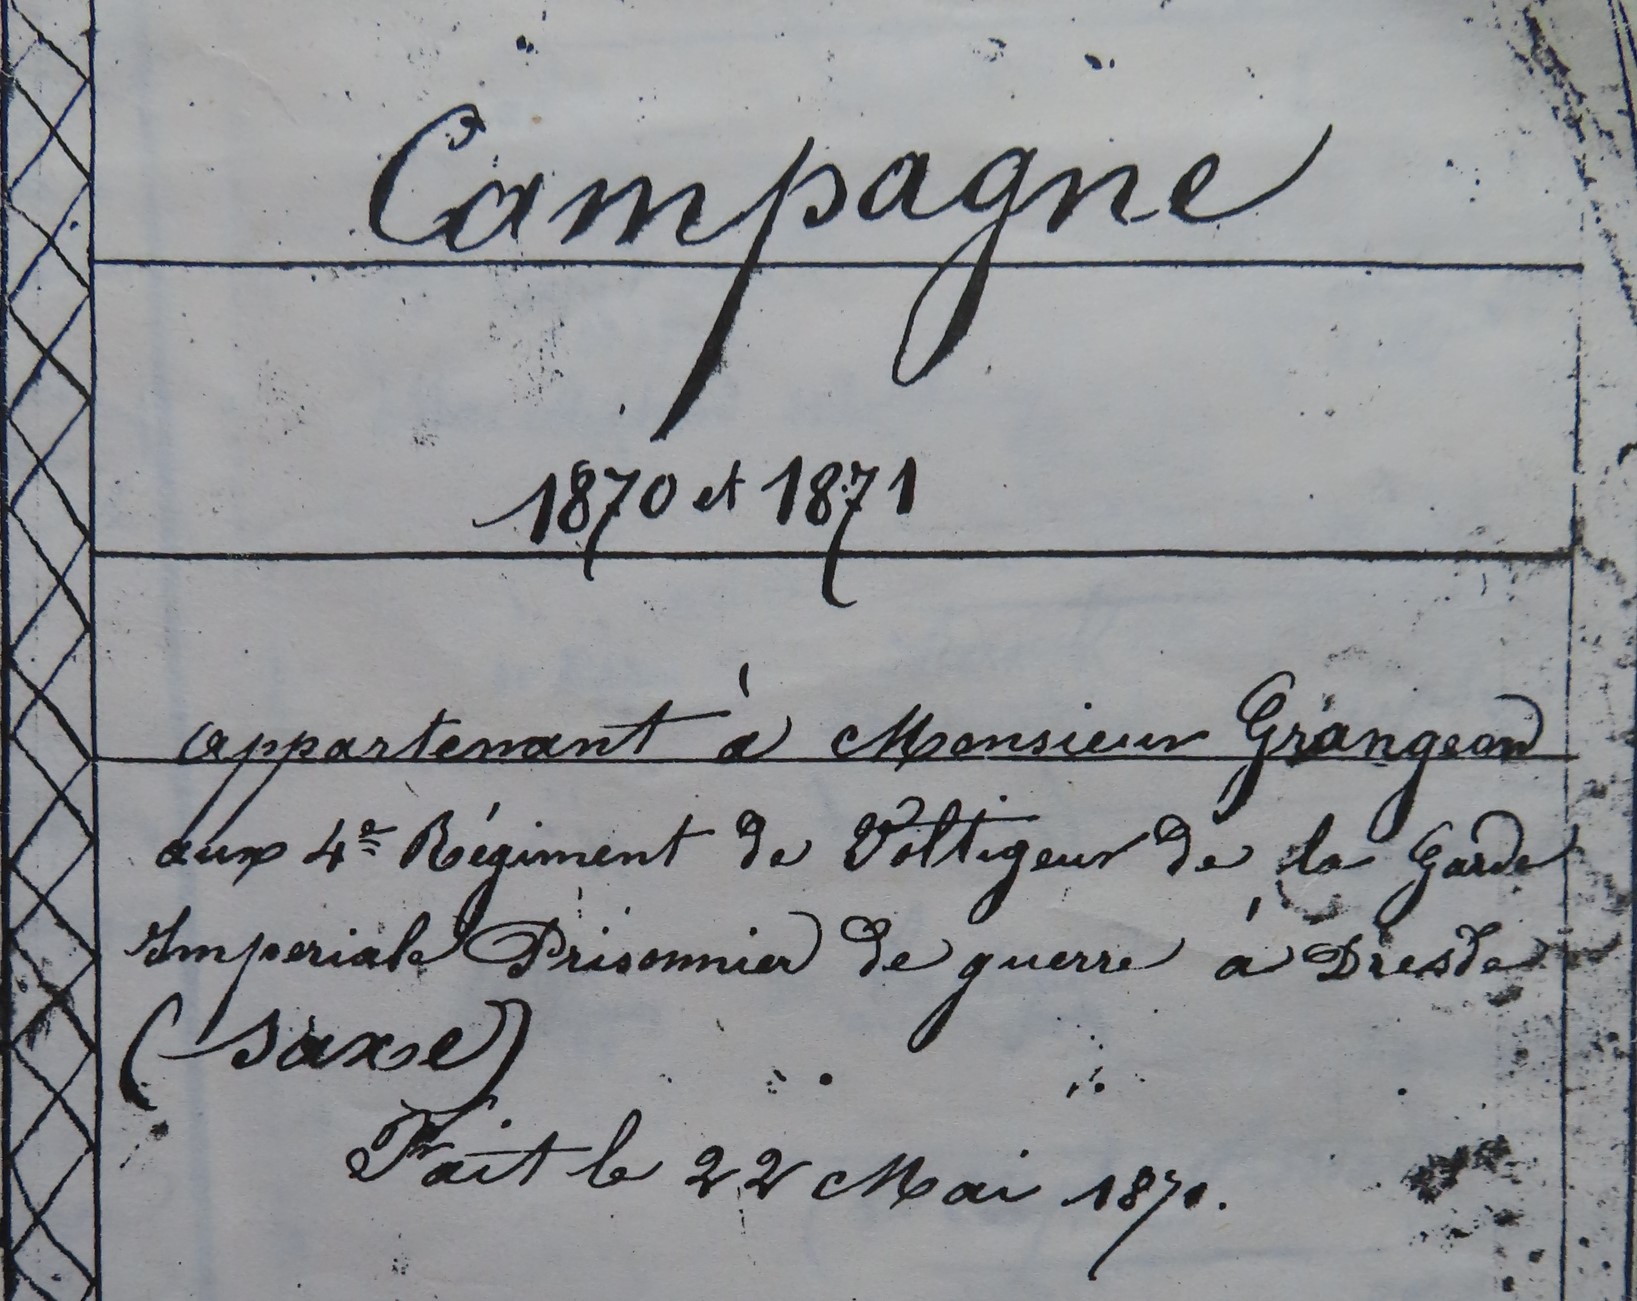 Campagne
1870 et 1871
appartenant à Monsieur Grangeon
aux 4e Régiment de Voltigeur de la Garde
Imperiale Prisonnier de guerre à Dresde
(Saxe)
Fait le 22 Mai 1871.